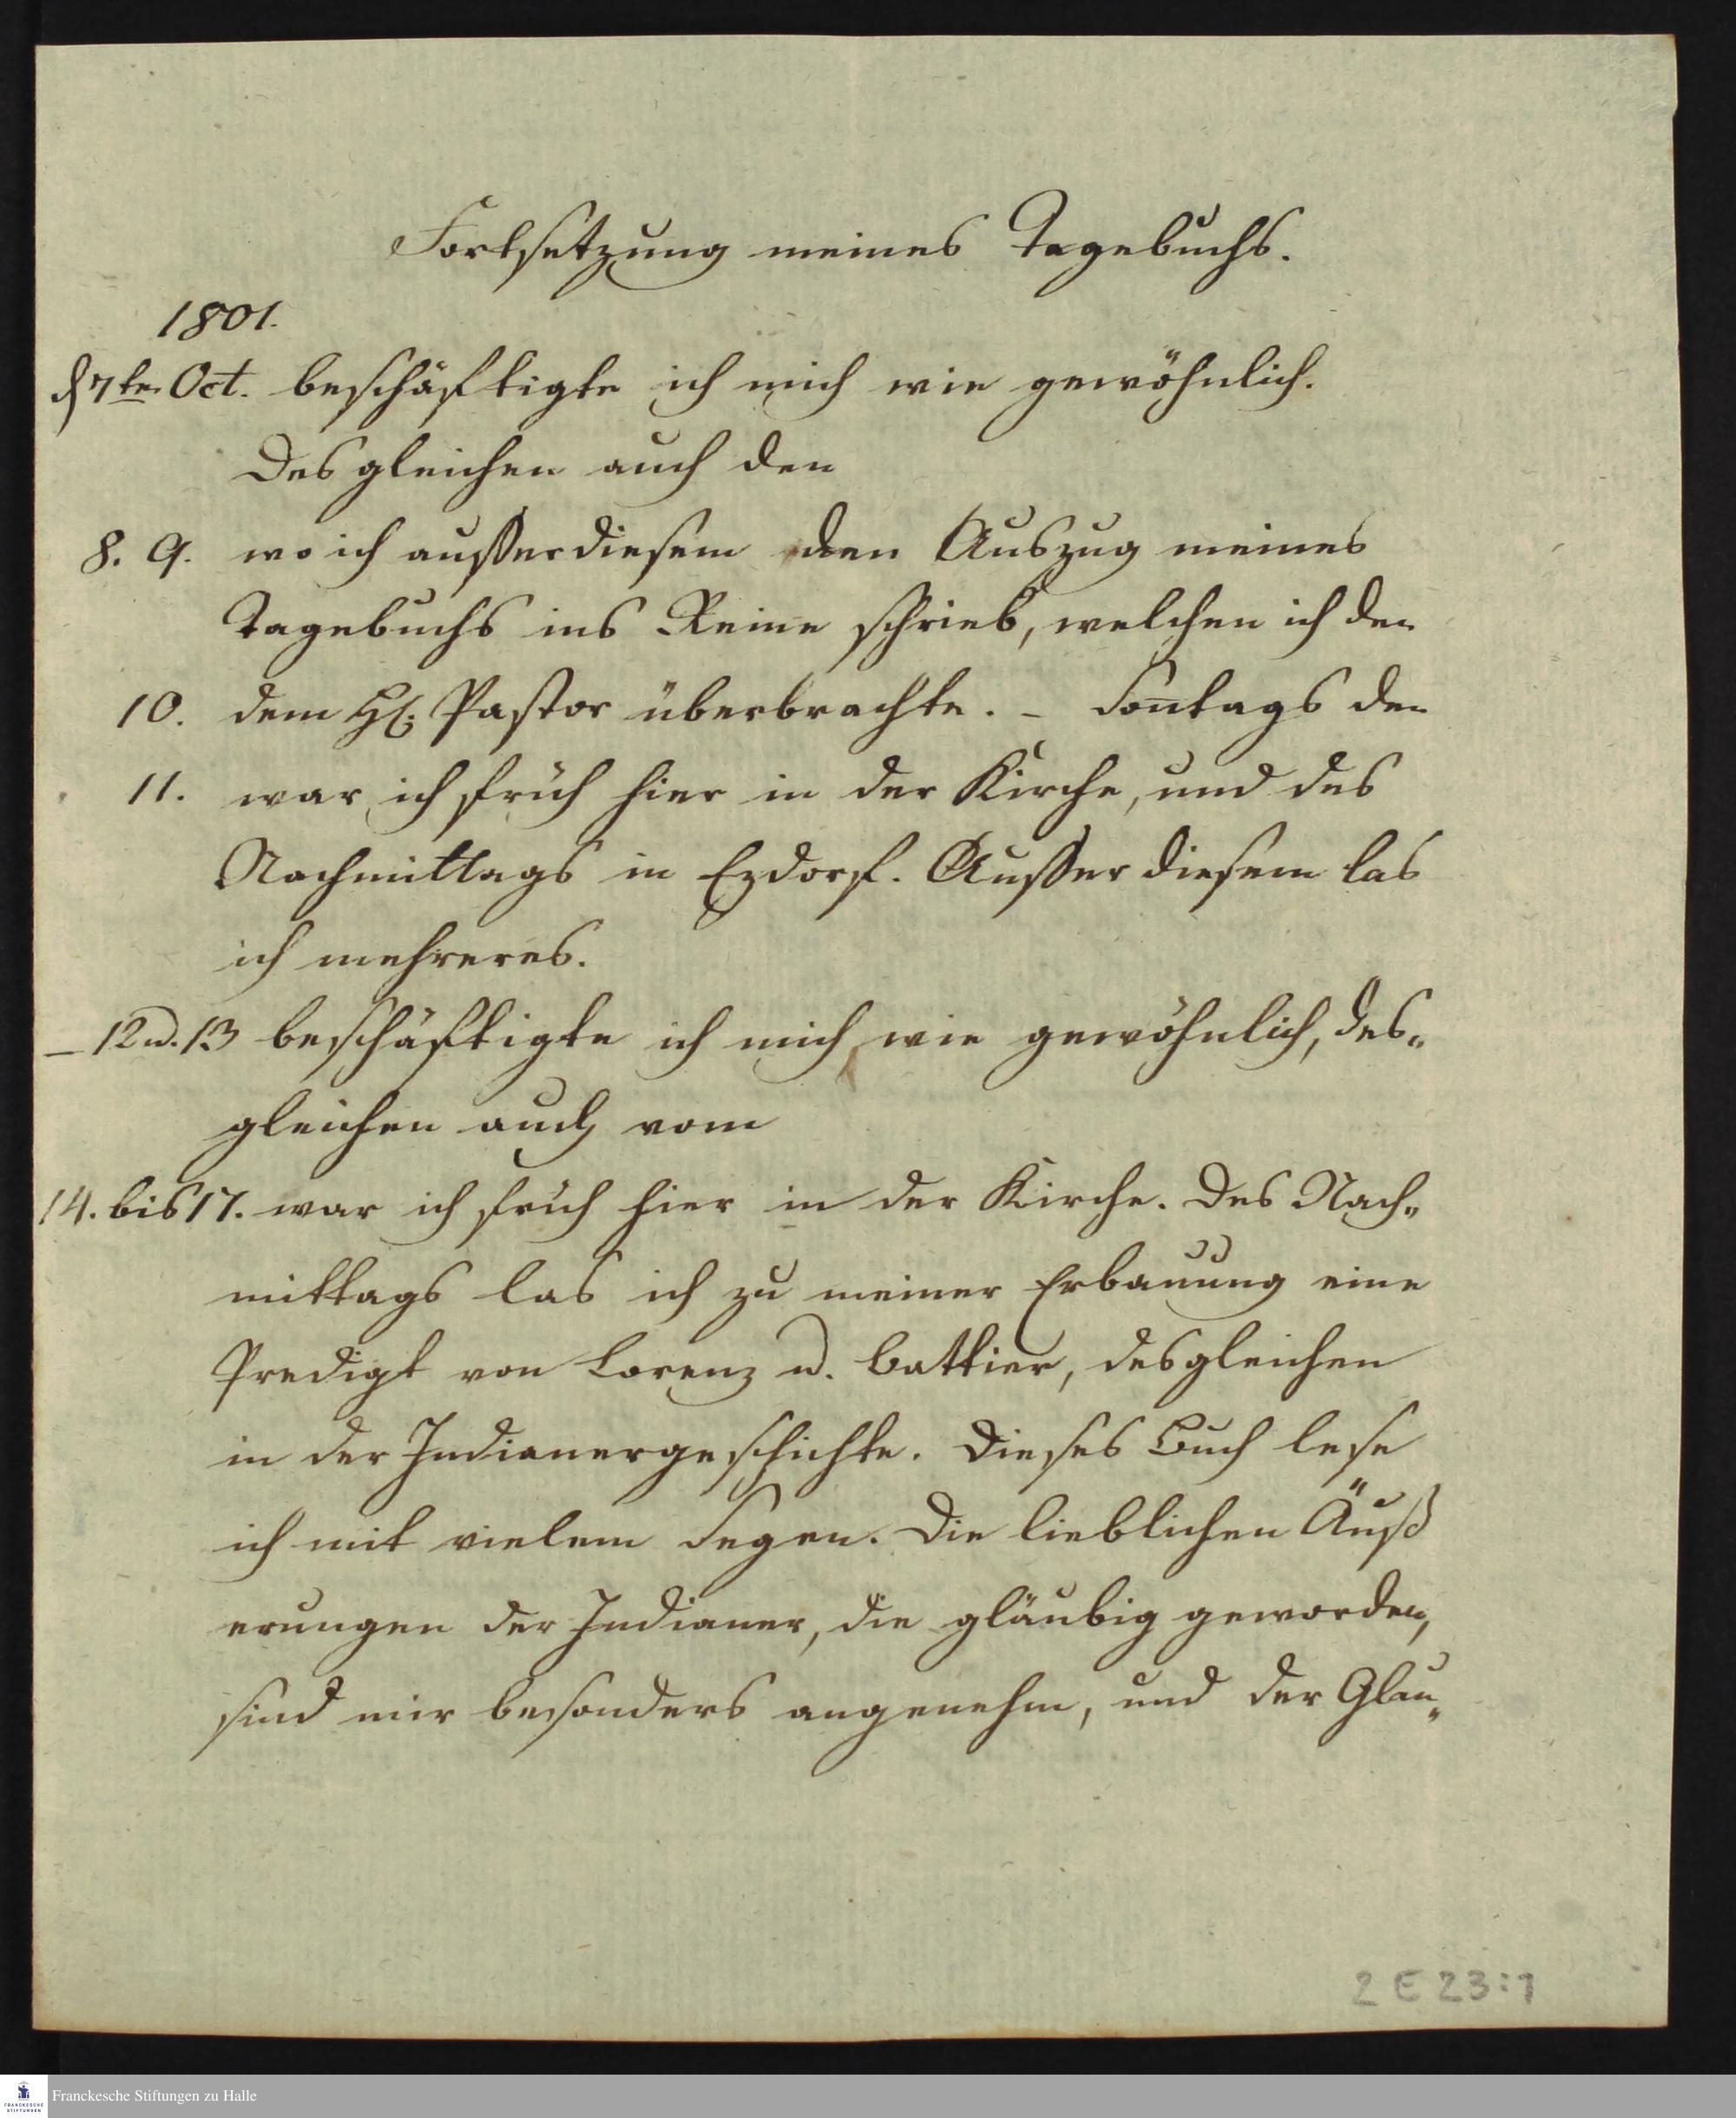 Fortsetzung meines Tagebuchs.
1801.
d 7ten Oct. beschäftigte ich mich wie gewöhnlich.
Desgleichen auch den
8. 9. wo ich ausserdiesem den Auszug meines
Tagebuchs ins Reine schrieb, welchen ich den
10. dem H. Pastor überbrachte. – Son̄tags den
11. war ich früh hier in der Kirche, und des
Nachmittags in Ezdorf. Ausser diesem las
ich mehreres.
– 12 u. 13 beschäftigte ich mich wie gewöhnlich, des„
gleichen auch vom
14. bis 17. war ich früh hier in der Kirche. Des Nach„
mittags las ich zu meiner Erbauung eine
Predigt von Lorenz u. Battier, desgleichen
in der Indianergeschichte. Dieses Buch lese
ich mit vielem Segen. Die lieblichen Äuß
erungen der Indianer, die gläubig geworden,
sind mir besonders angenehm, und der Glau„
2 E 23:1
Franckesche Stiftungen zu Halle
FRANCKESCHE
STIFTUNGEN